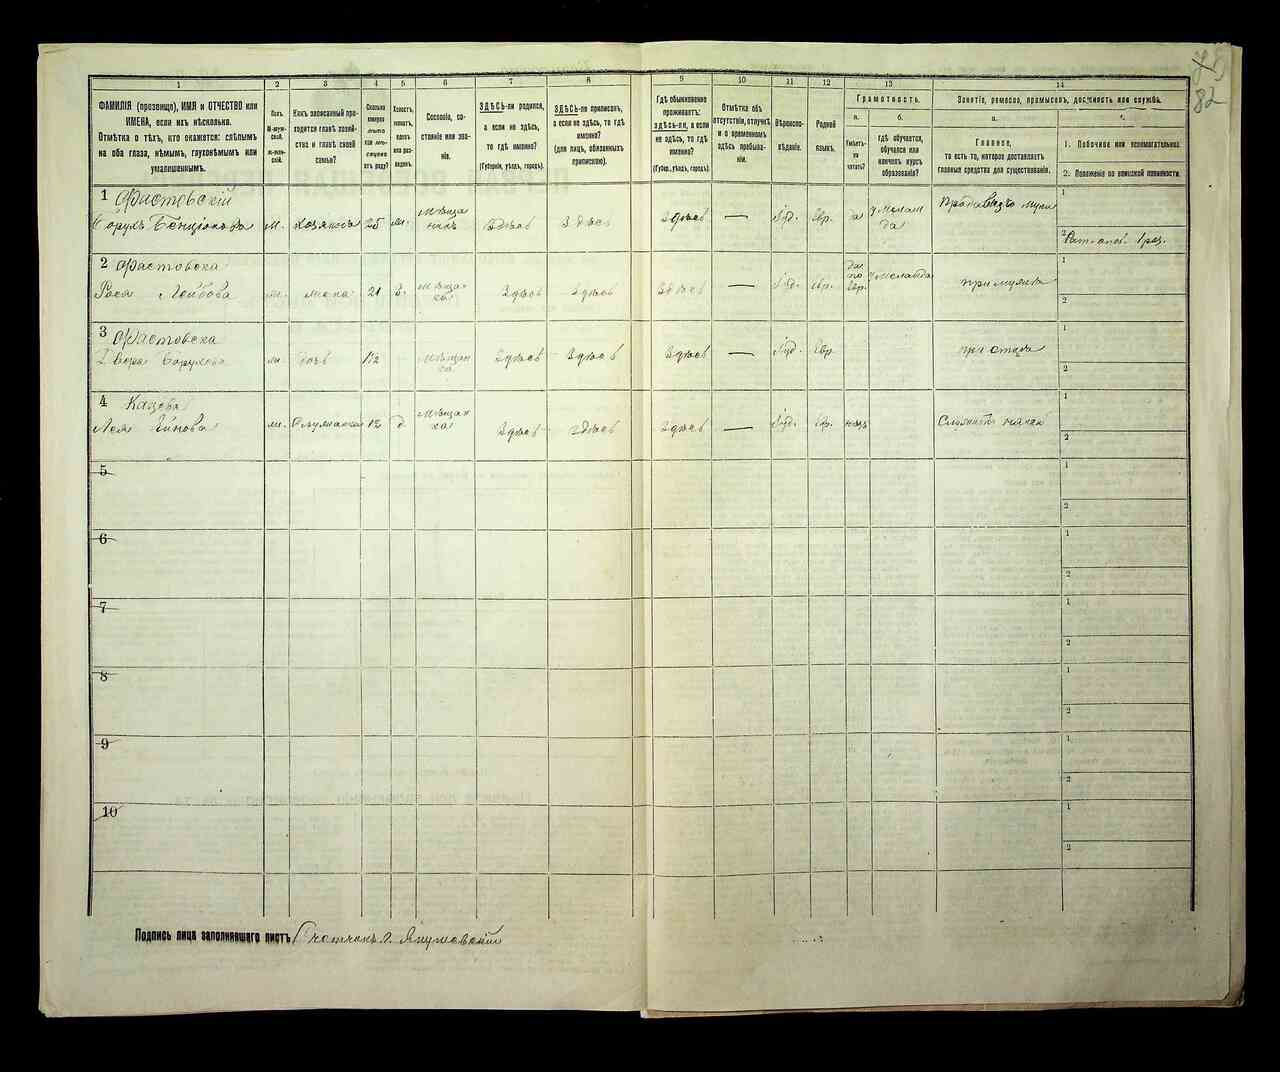 82
1
2
3
4
5
6
7
8
9
10
11
12
13
14
ФАМИЛІЯ (прозвище), ИМЯ и ОТЧЕСТВО или
ИМЕНА, если ихъ нѣсколько.
Отмѣтка о тѣхъ, кто окажется: слѣпымъ
на оба глаза, нѣмымъ, глухонѣмымъ или
умалишеннымъ.
Полъ.
Какъ записанный при-
ходится главѣ хозяй-
ства и главѣ своей
семьи?
Сословіе, со-
стояніе или зва-
ніе.
ЗДѢСЬ-ли родился,
а если не здѣсь,
то гдѣ именно?
(Губернія, уѣздъ, городъ).
ЗДѢСЬ-ли приписанъ,
а если не здѣсь, то гдѣ
именно?
(для лицъ, обязанныхъ
припискою).
Гдѣ обыкновенно
проживаетъ:
здѣсь-ли, а если
не здѣсь, то гдѣ
именно?
(Губер., уѣздъ, городъ).
Отмѣтка объ
отсутствіи, отлучкѣ
и о временномъ
здѣсь пребыва-
ніи.
Вѣроиспо-
вѣданіе.
Родной
языкъ.
Грамотность.
а.
Умѣетъ-
ли
читать?
б.
гдѣ обучается,
обучался или
кончилъ курсъ
образованія?
Занятіе, ремесло, промыселъ, должность или служба.
а.
Главное,
то есть то, которое доставляетъ
главныя средства для существованія.
1. Побочное или вспомогательное.
2. Положеніе по воинской повинности.
1 Фастовскій
Борухъ Бенціонова м. Хозяинъ 25 ж. Мѣща
нинъ Здѣсь Здѣсь Здѣсь — Іуд. Евр. да у Мелам
да
1
2
2 Фастовска
Рася Лейбова ж. жена 21 з. Мѣщан
ка Здѣсь Здѣсь Здѣсь — Іуд. Евр. да
по
Евр. у Меламда при мужѣ
1
2
3 Фастовска
Двора Борухова ж. дочь 1/2 Мѣщан
ка Здѣсь Здѣсь Здѣсь — Іуд. Евр. при отцѣ
1
2
4 Кацева
Лея ж. Служанка 12 д. Мѣщан
ка Здѣсь Здѣсь Здѣсь — Іуд. Евр. нѣтъ
1
2
5
1
2
6
1
2
7
1
2
8
1
2
9
1
2
10
1
2
Подпись лица заполнявшаго листъ Счетчикъ